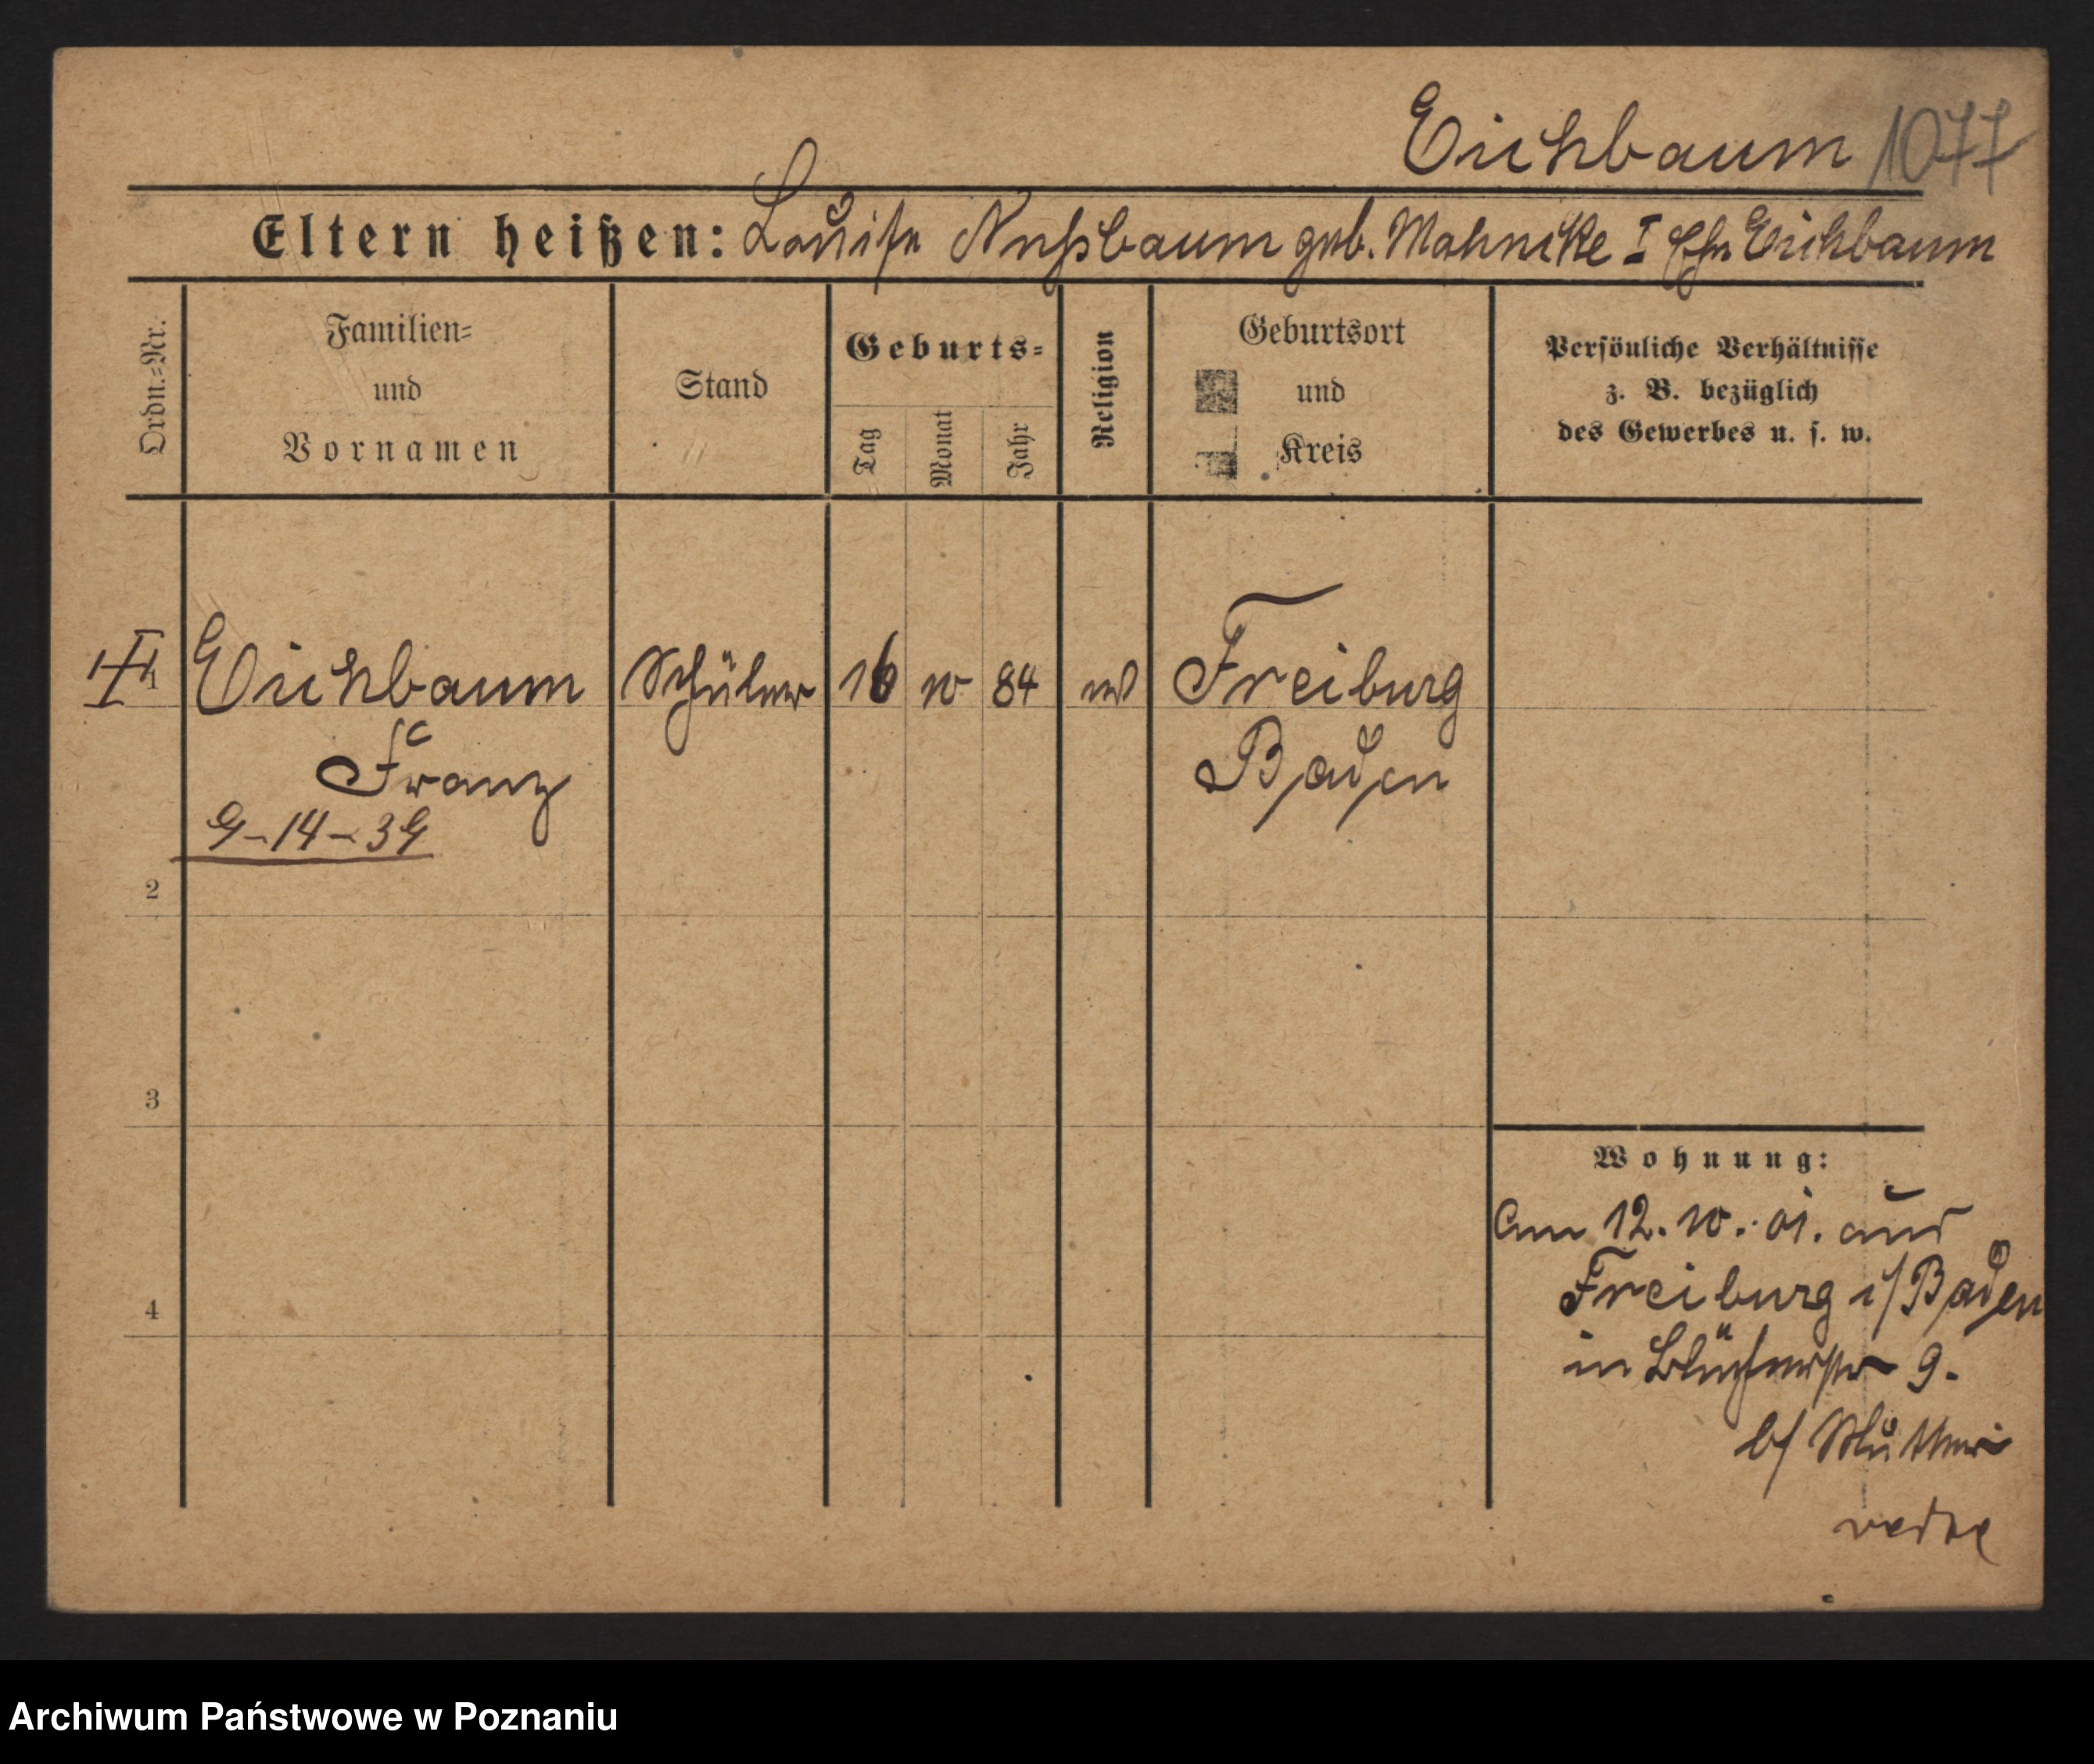 Eichbaum 1077
Eltern heißen: Louise Nußbaum geb. Mahnke I Ehe Eichbaum
Ordn.-Nr.
Familien-
und
Vornamen
Stand
Geburts-
Tag
Monat
Jahr
Religion
Geburtsort
und
Kreis
Persönliche Verhältnisse
z. B. bezüglich
des Gewerbes u. s. w.
1 Eichbaum Schüler 16 10 84 Freiburg
Franz Baden
9-14-39
2
3
4
Wohnung:
Am 12. 10. 01. aus
Freiburg i/Baden
in Blücherstr 9.
b/ Mutter